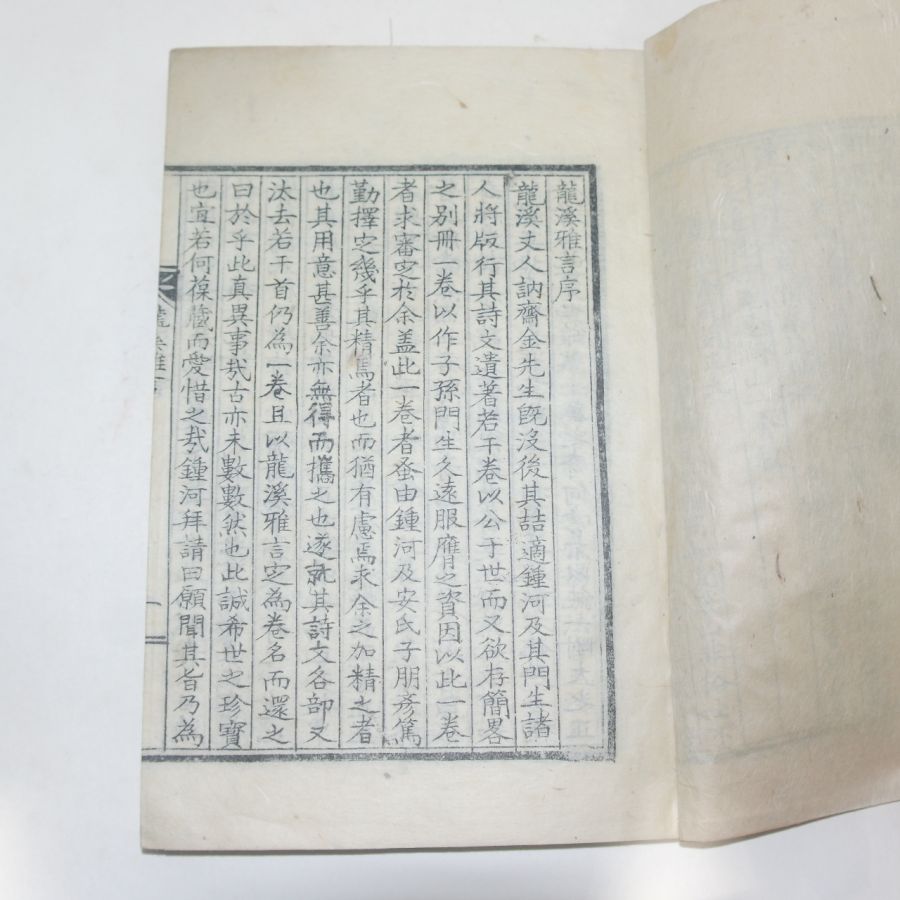 龍溪雅言序
龍溪丈人訥齋金先生旣沒後其嘉適鍾河及其門生諸
人將版行其詩文遺著若干卷以公于世而又欲存簡畧
之別冊一卷以作子孫門生久遠服膺之資因以此一卷
者求審定於余盖此一卷者蚤由鍾河及安氏子朋彥篤
勤擇定幾乎其精焉者也而猶有慮焉求余之加精之者
也其用意甚善余亦無得而攜之也遂就其詩文各部又
汰去若干首仍為一卷且以龍溪雅言定為卷名而還之
曰於乎此真異事哉古亦未數數然也此誠希世之珍寶
也宜若何葆藏而愛惜之哉鍾河拜請曰願聞其旨乃為